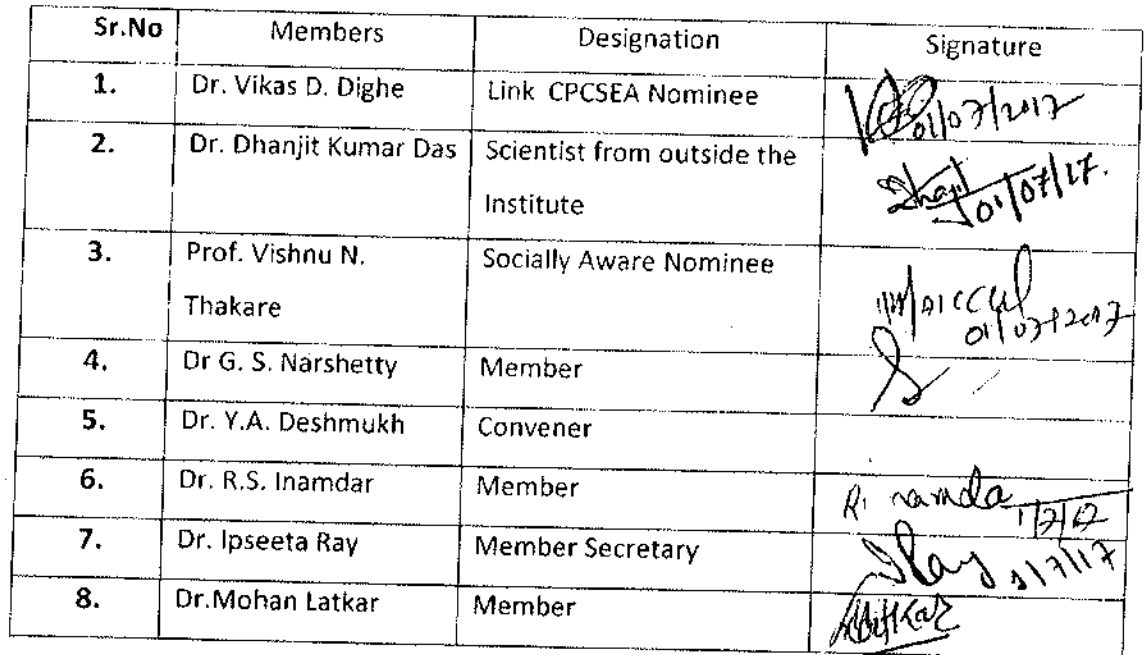 Sr.No Members Designation Signature
1. Dr. Vikas D. Dighe Link CPCSEA Nominee 01/07/2017
2. Dr. Dhanjit Kumar Das Scientist from outside the
Institute 01/07/17.
3. Prof. Vishnu N. Socially Aware Nominee
Thakare 01/07/2017
4. Dr G. S. Narshetty Member
5. Dr. Y.A. Deshmukh Convener
6. Dr. R.S. Inamdar Member 1/7/17
7. Dr. Ipseeta Ray Member Secretary IRay 1/7/17
8. Dr.Mohan Latkar Member